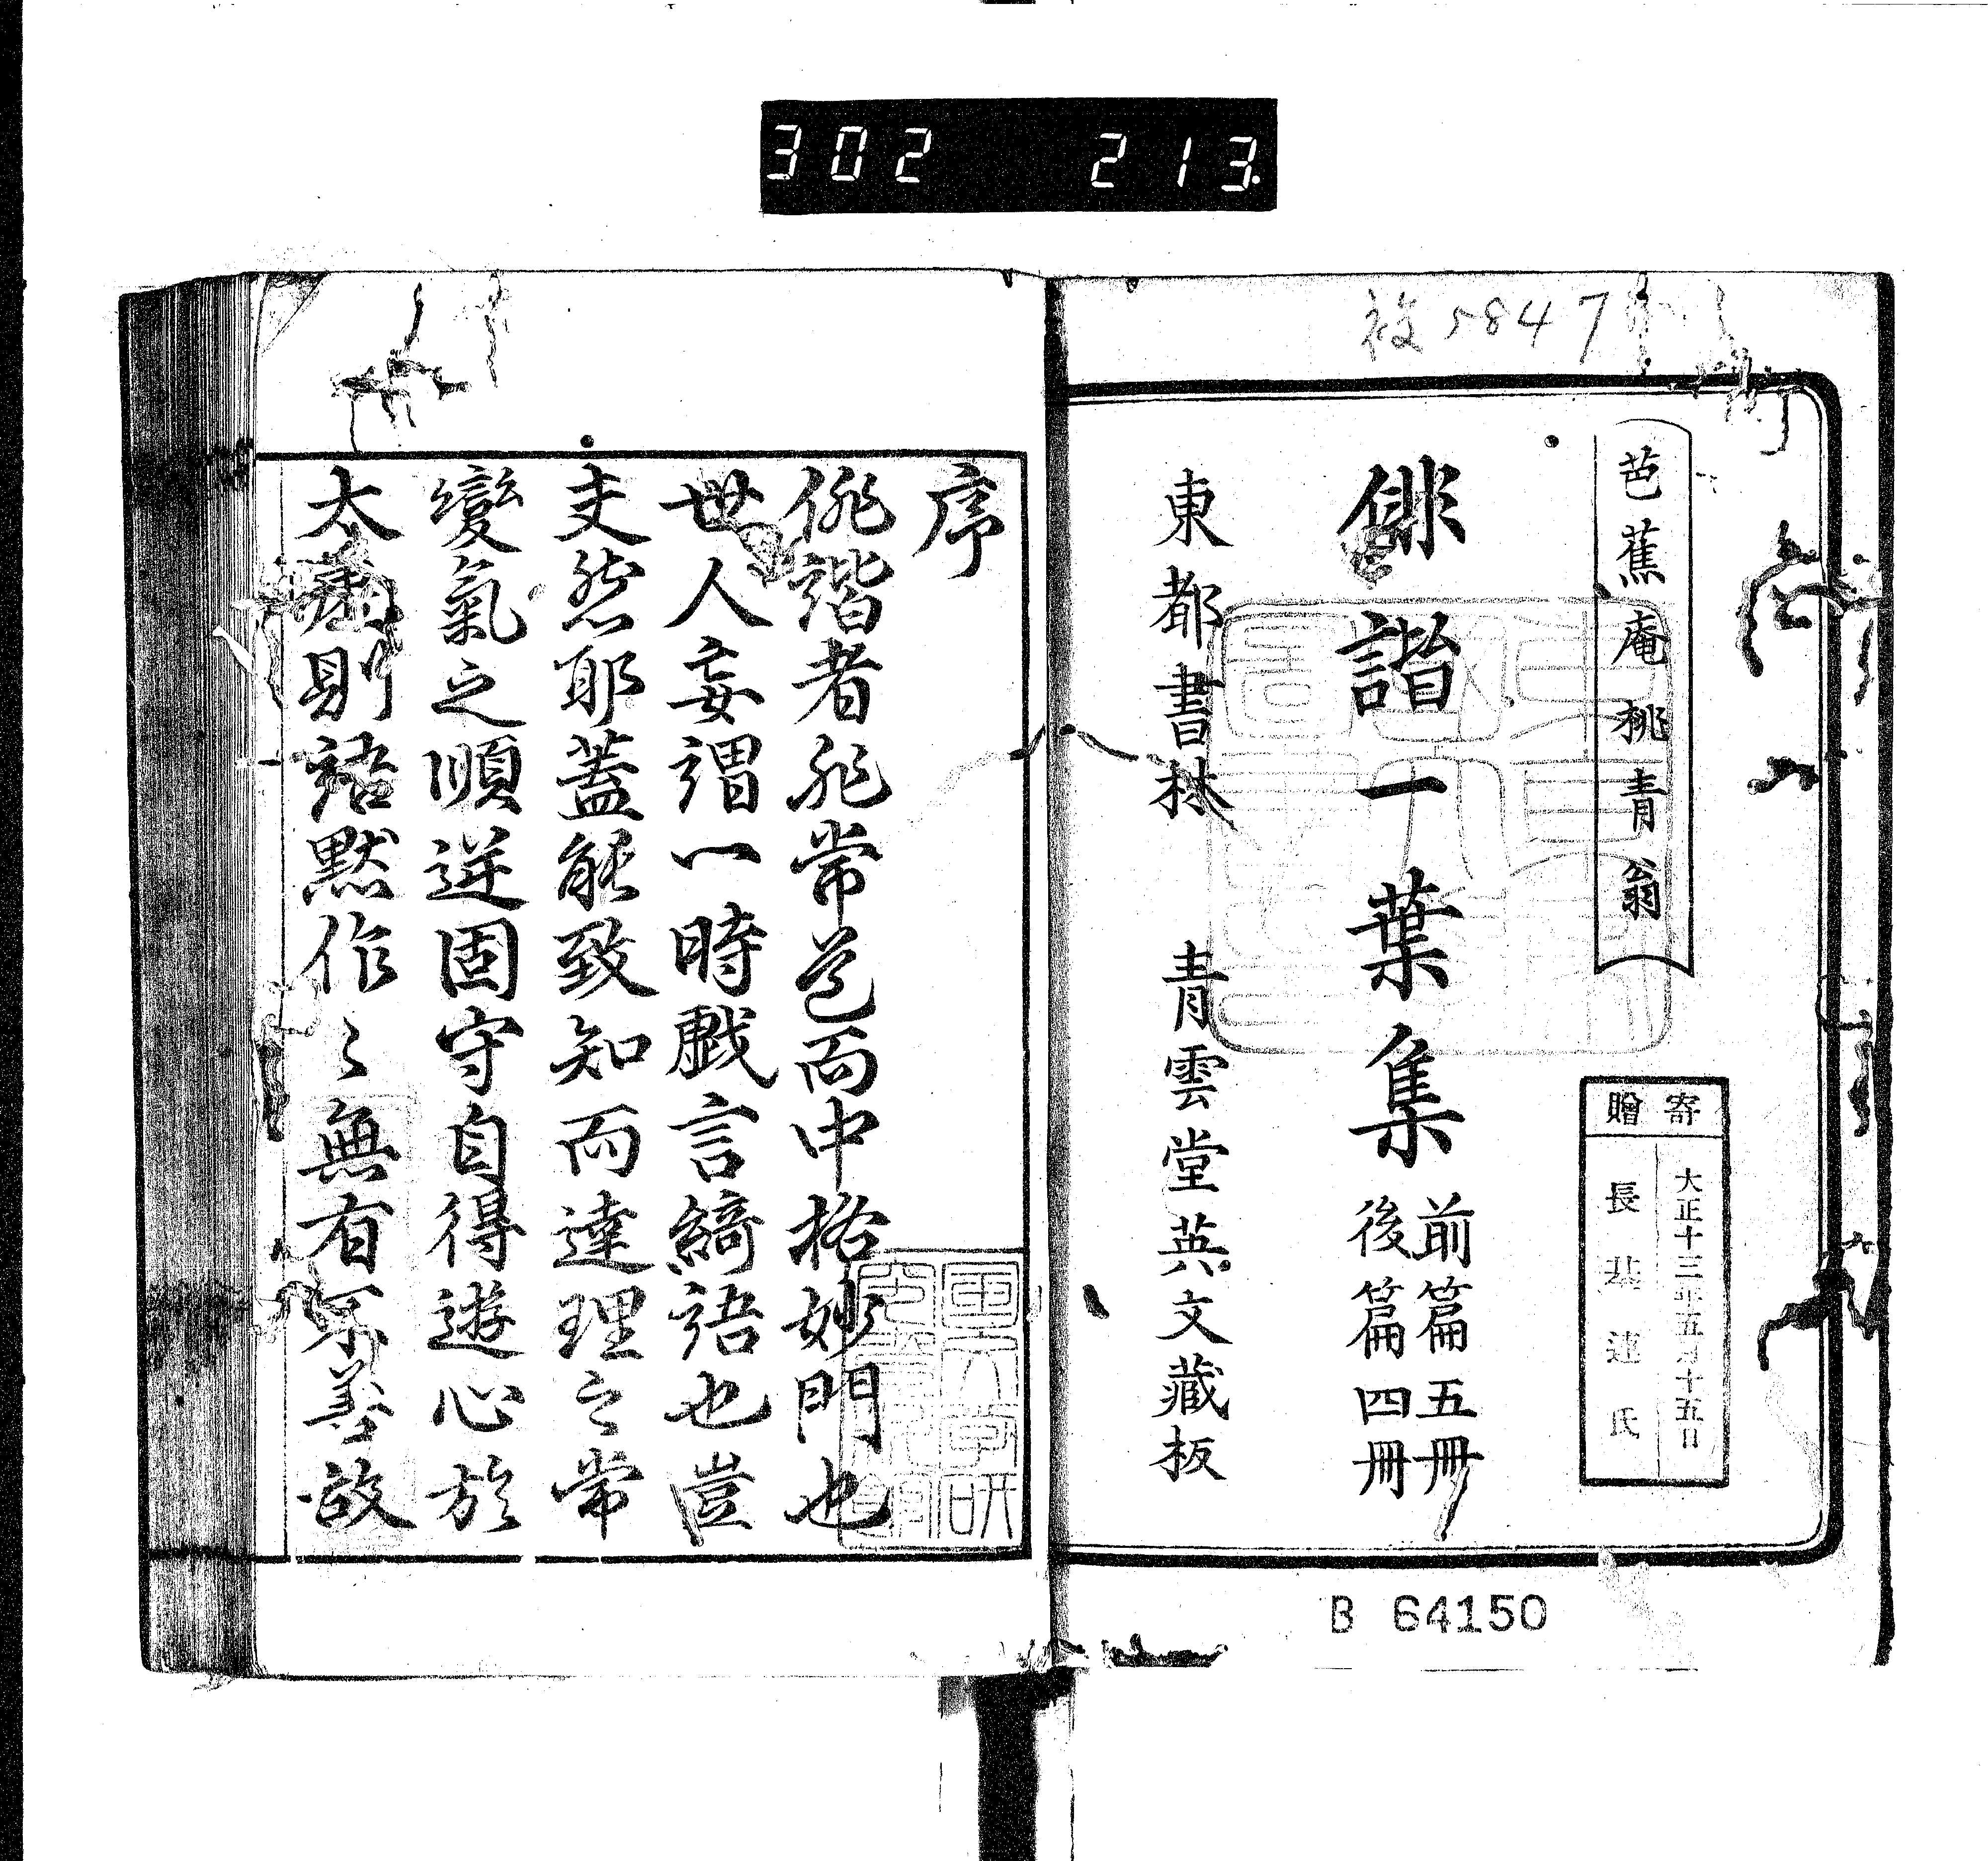 302 213
5847
芭蕉庵桃青翁
俳諧一葉集
前篇五冊
後篇四冊
東都書林 青雲堂英文藏板
寄贈
大正十三年五月十五日
長基連氏
B 64150
序
俳諧者非常道而中格妙門也
世人妄謂一時戲言綺語也豈
夫然耶蓋能致知而達理之常
變氣之順逆固守自得遊心於
太虛則語默作〻無有不善故